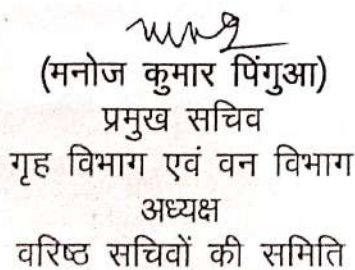 (मनोज कुमार पिंगुआ)
प्रमुख सचिव
गृह विभाग एवं वन विभाग
अध्यक्ष
वरिष्ठ सचिवों की समिति